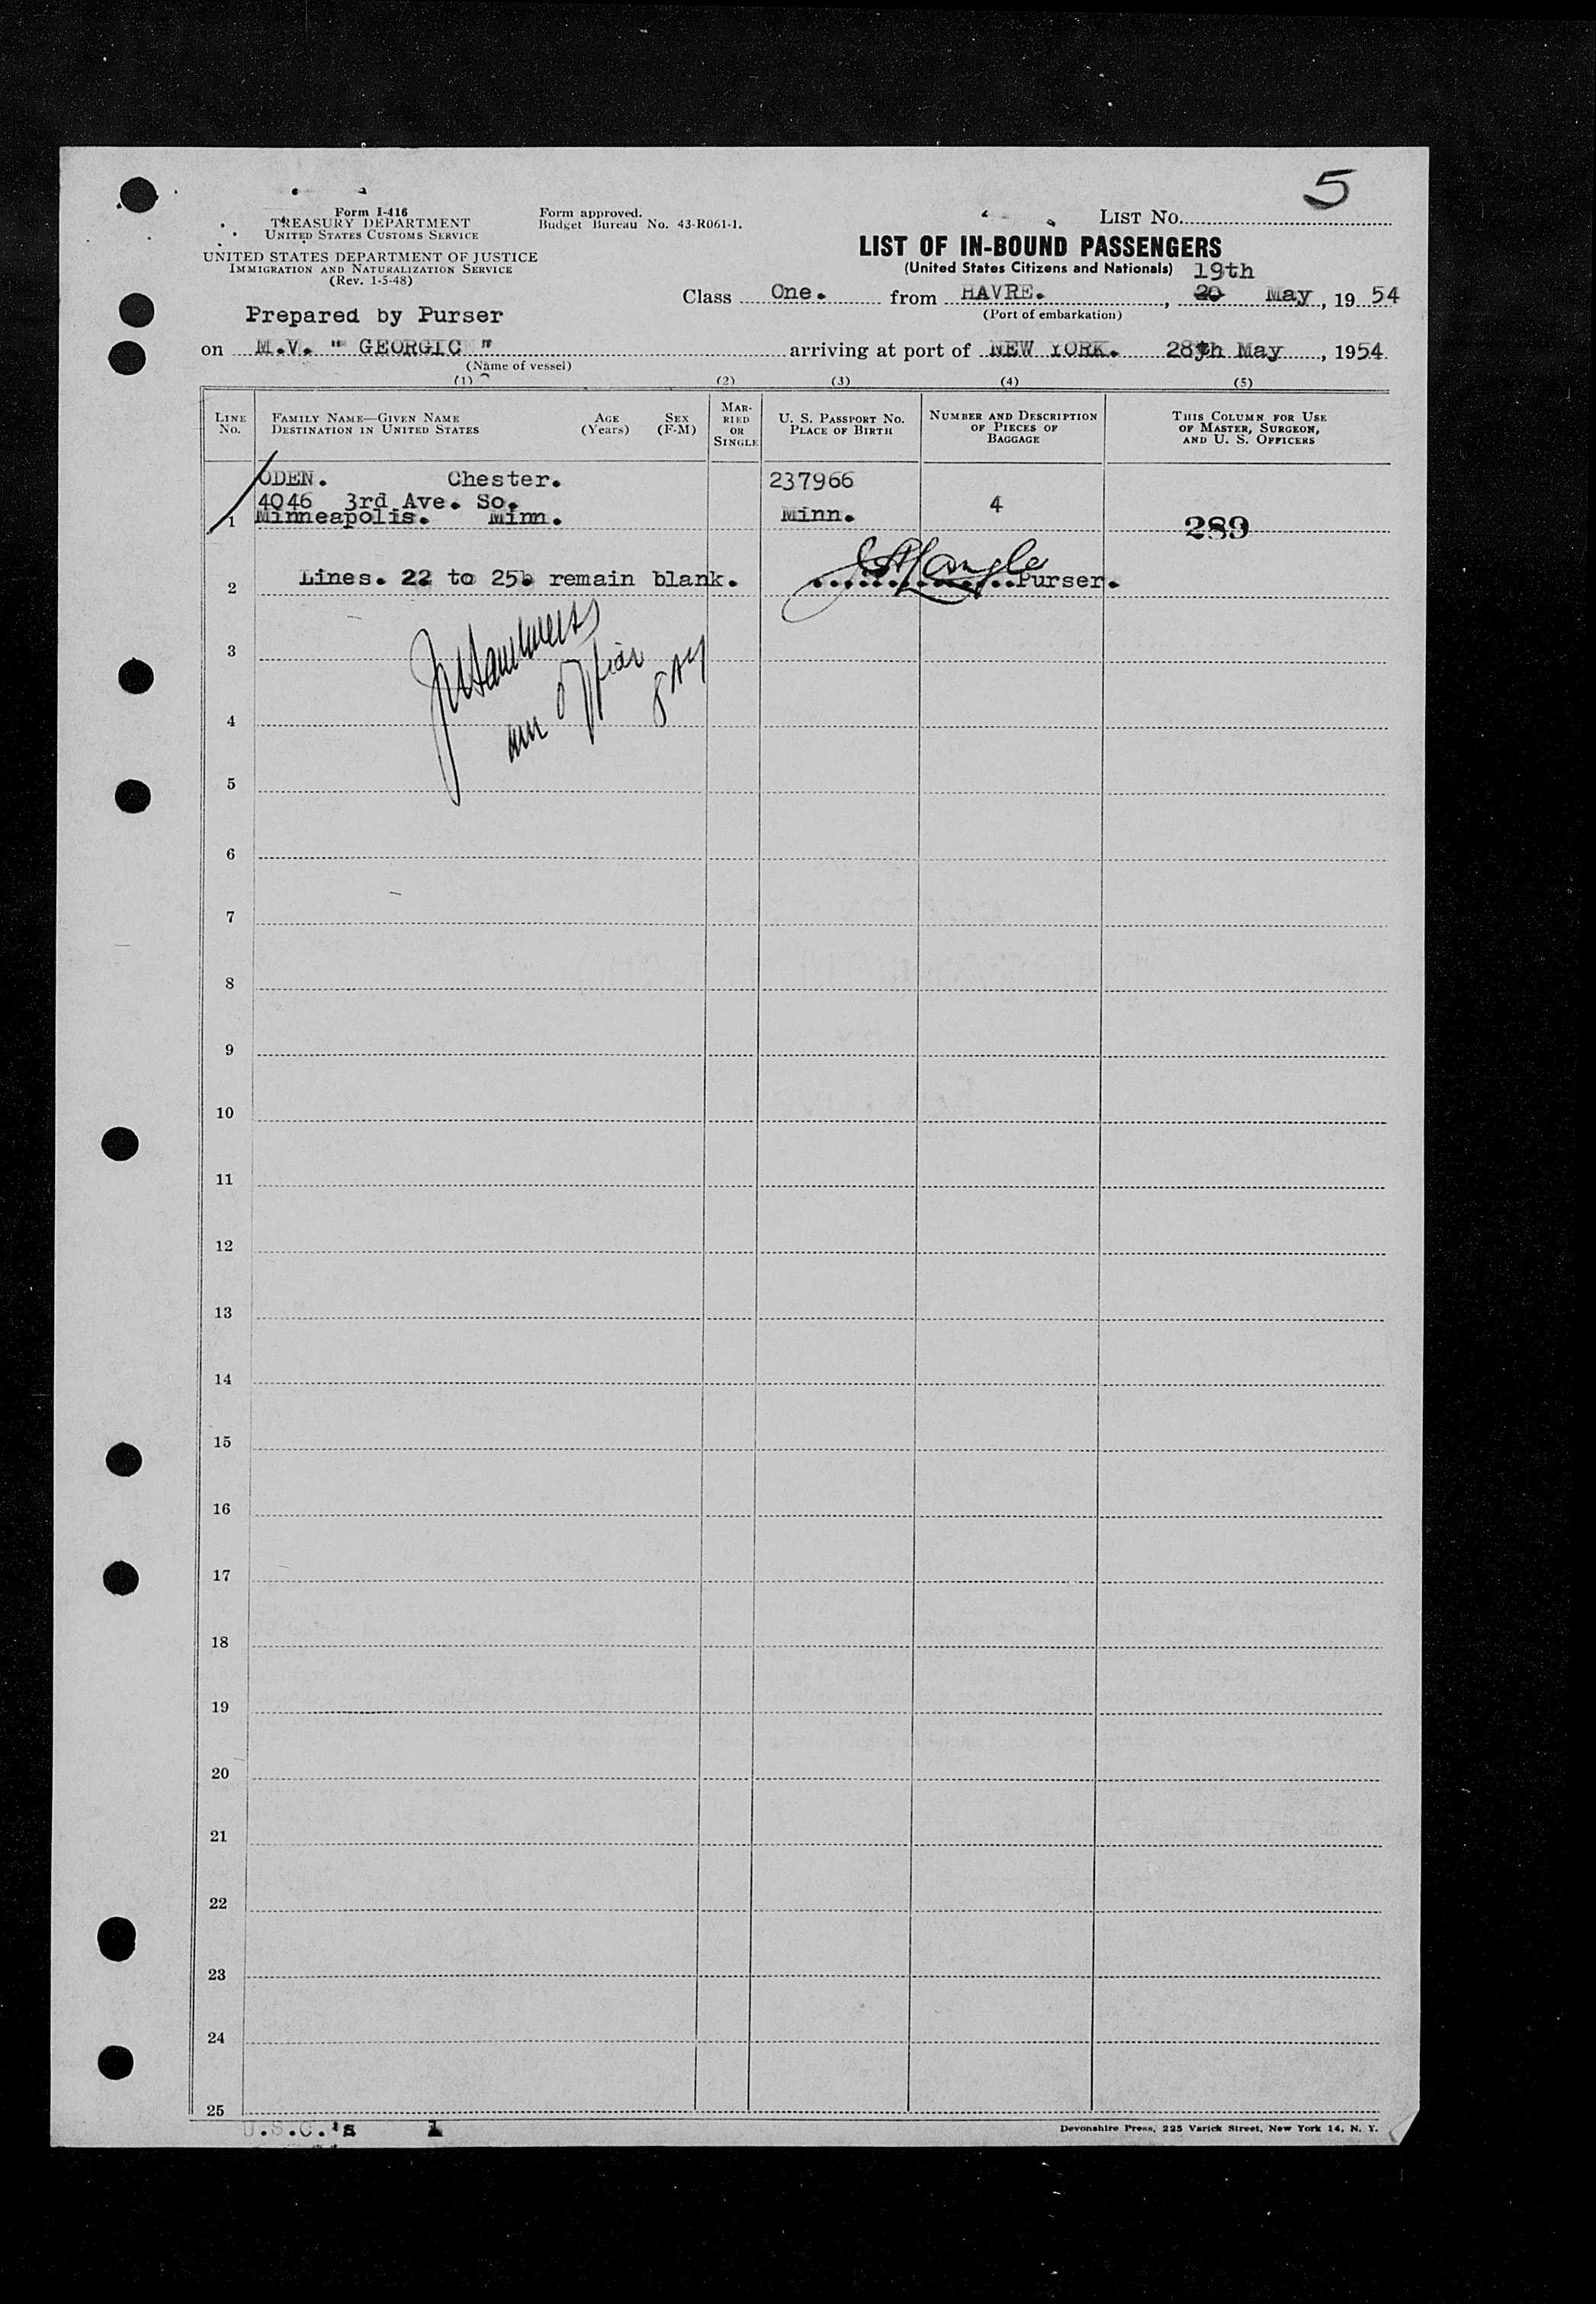 5
Form I-416
TREASURY DEPARTMENT
UNITED STATES CUSTOMS SERVICE
Form approved.
Budget Bureau No. 43-R061-1.
LIST NO.
UNITED STATES DEPARTMENT OF JUSTICE
IMMIGRATION AND NATURALIZATION SERVICE
(Rev. 1-5-48)
LIST OF IN-BOUND PASSENGERS
(United States Citizens and Nationals)
19th
Class One. from HAVRE. , 20 May, 19 54
(Port of embarkation)
Prepared by Purser
on M.V. " GEORGIC " arriving at port of NEW YORK. 28th May, 1954
(Name of vessel)
(1) (2) (3) (4) (5)
LINE NO.
FAMILY NAME—GIVEN NAME
DESTINATION IN UNITED STATES
AGE (Years)
SEX (F-M)
MARRIED OR SINGLE
U. S. PASSPORT NO.
PLACE OF BIRTH
NUMBER AND DESCRIPTION
OF PIECES OF
BAGGAGE
THIS COLUMN FOR USE
OF MASTER, SURGEON,
AND U. S. OFFICERS
ODEN. Chester. 237966
4046 3rd Ave. So. 4
1 Minneapolis. Minn. Minn. 289
2 Lines. 22 to 25b remain blank. Purser.
3
4
5
6
7
8
9
10
11
12
13
14
15
16
17
18
19
20
21
22
23
24
25
U.S.C.'s 1
Devonshire Press, 225 Varick Street, New York 14, N. Y.